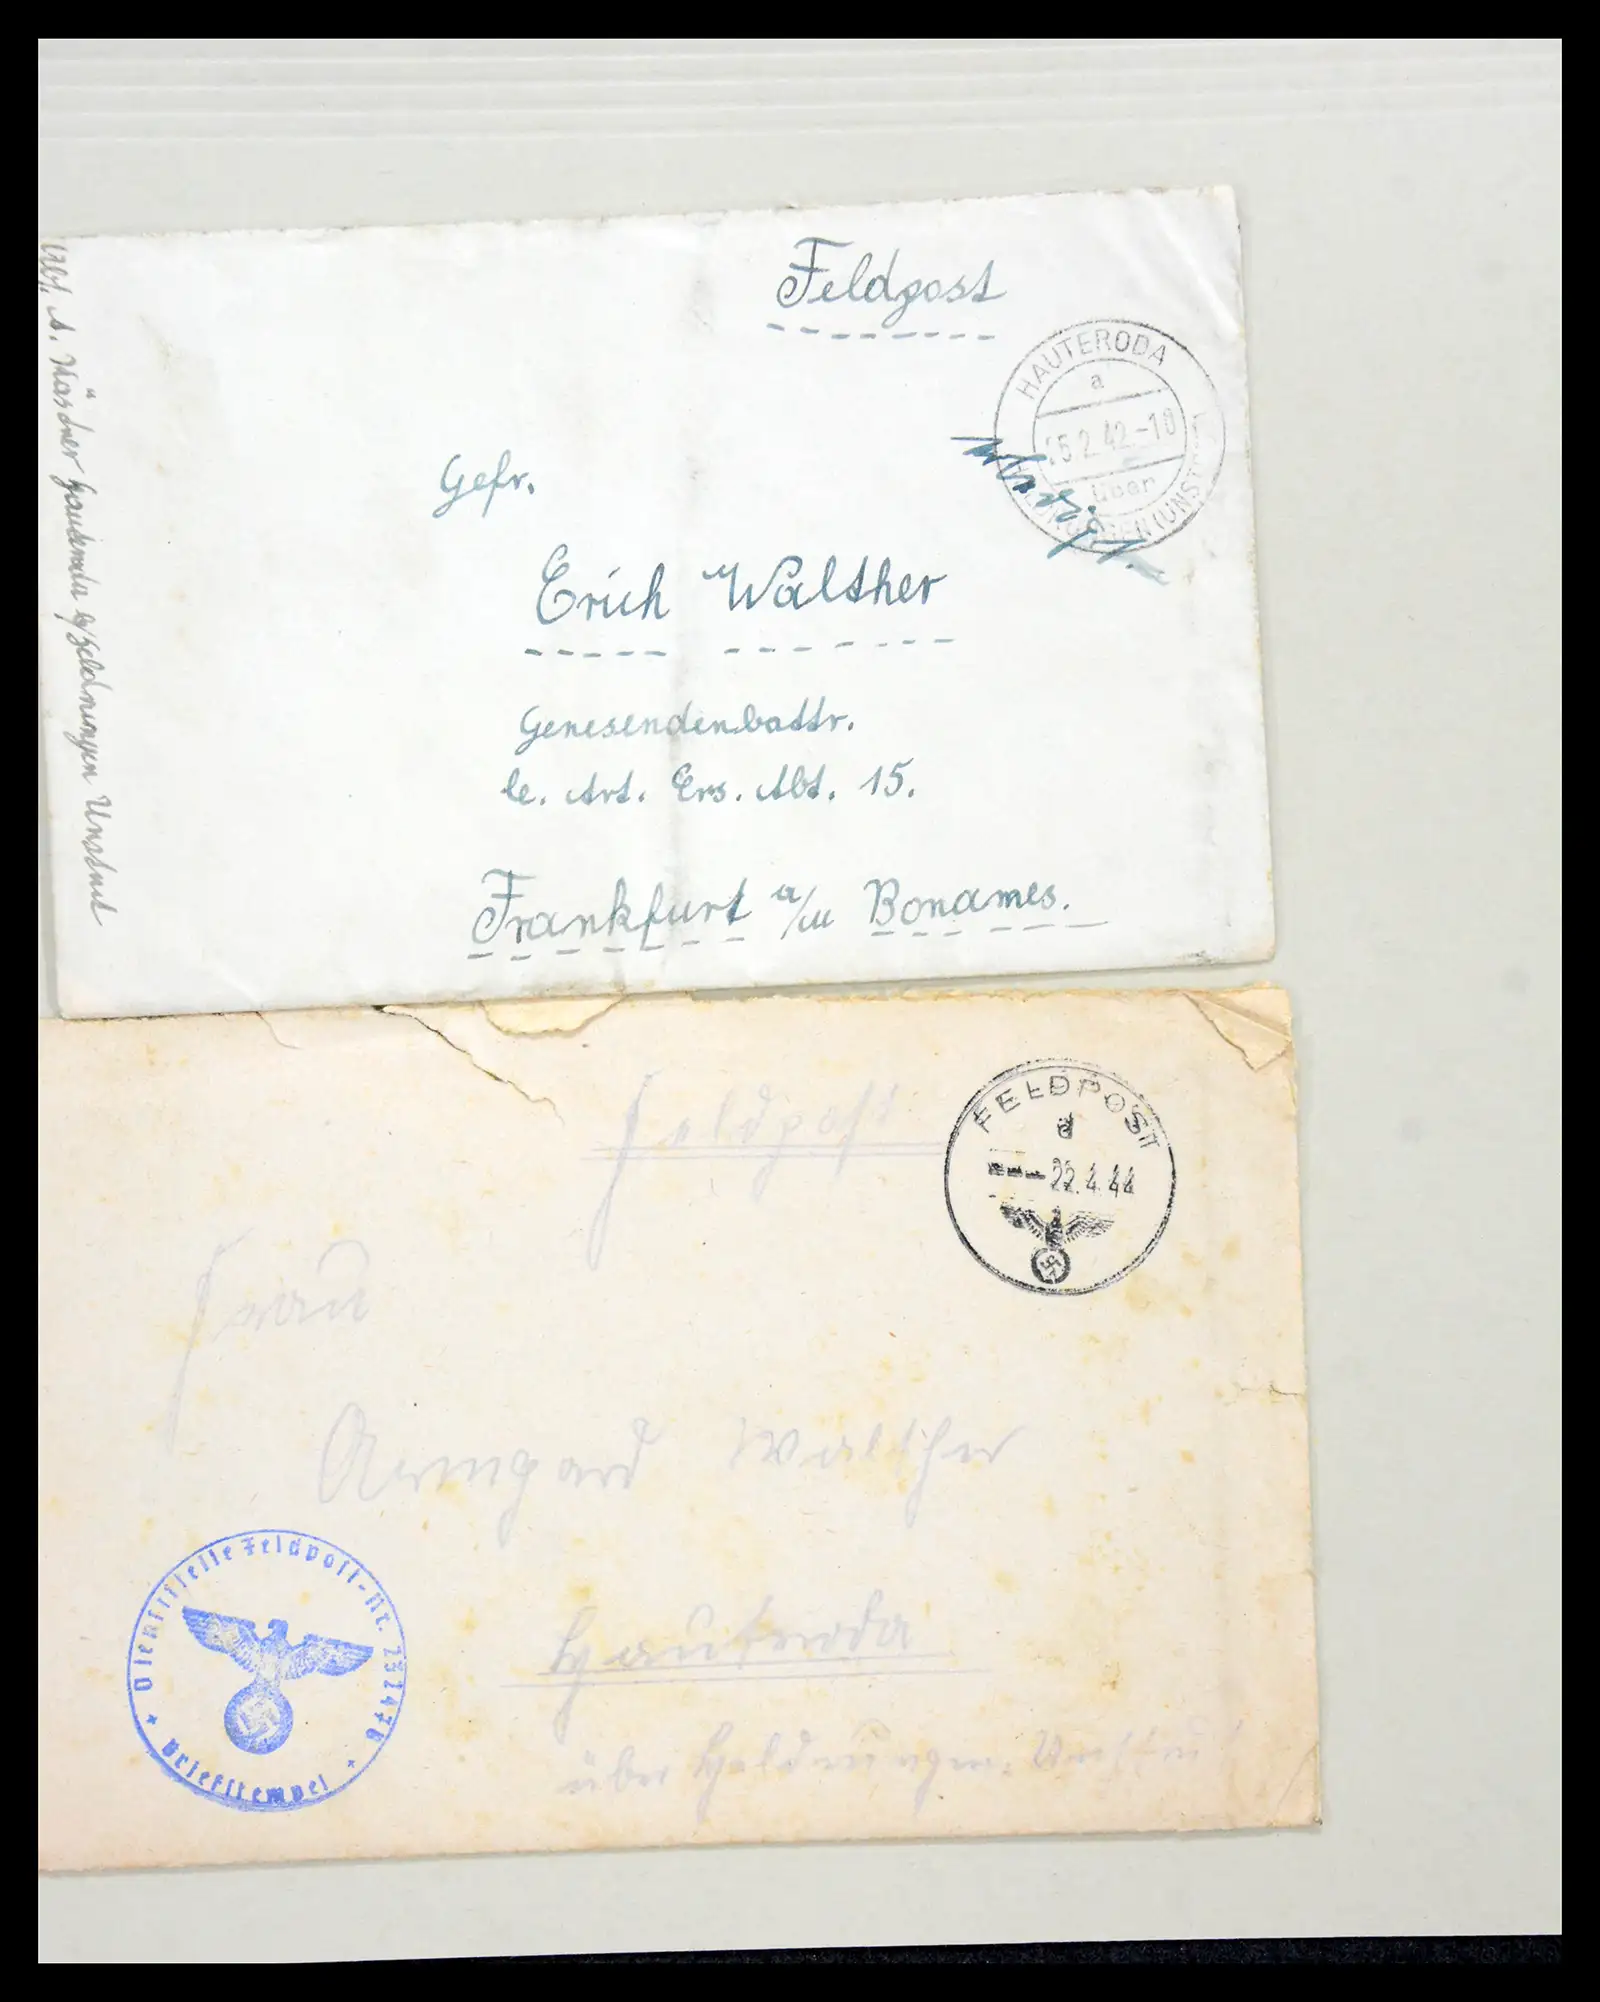 Feldpost
HAUTERODA
a
15.2.42.-10
über
(UNSTRUT)
Gefr.
Erich Walther
Genesendenbattr.
le. Art. Ers. Abt. 15.
Frankfurt a/M Bonames.
Abs. A. Hauteroda b/Heldrungen Unstrut
FELDPOST
d
22.4.44
Feldpost
Frau
Armgard Walther
Hauteroda
über Heldrungen-Unstrut
Dienststelle Feldpost-Nr. 23247B
Briefstempel